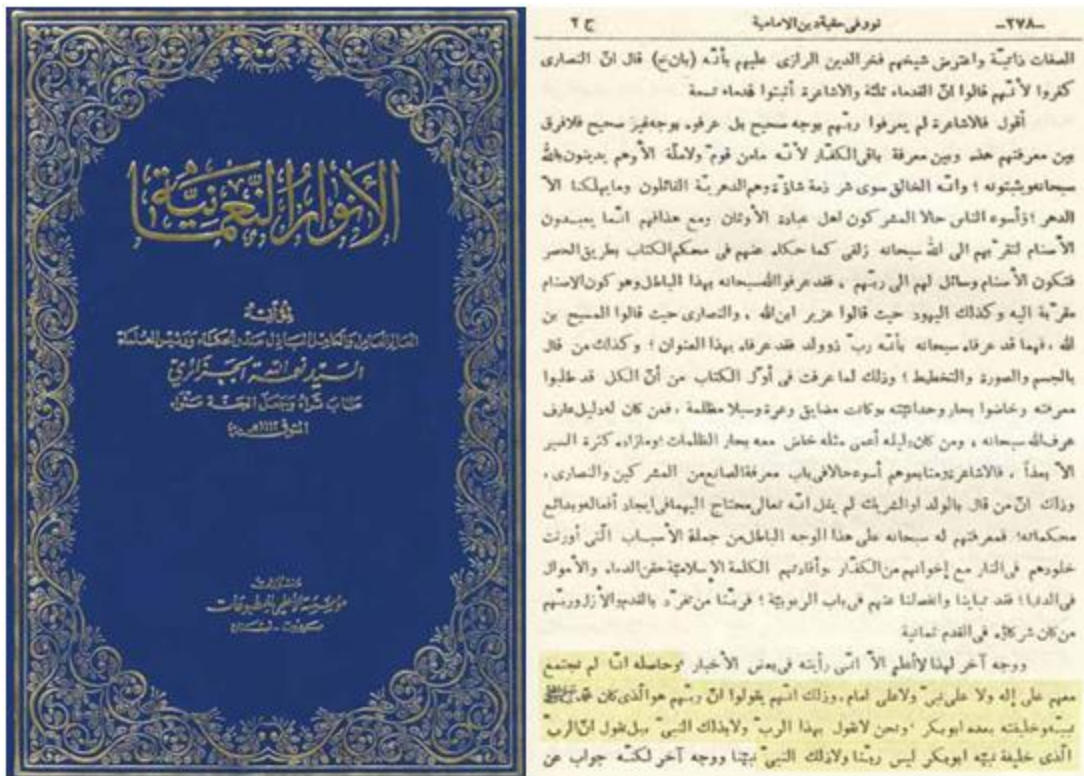 الأنوار النعمانية
لمؤلفه
السيد نعمة الله الجزائري
طاب ثراه وجعل الجنة مثواه
منشورات
مؤسسة الأعلمي للمطبوعات
بيروت - لبنان
ج ٢ نور فى حقية دين الامامية -٢٧٨-
الصفات ذاتيّة واعترض شيخهم فخر الدين الرازى عليهم بأنّه (بان خ) قال انّ النصارى
كفروا لأنّهم قالوا انّ القدماء ثلثة والاشاعرة أثبتوا قدماء تسعة
أقول فالاشاعرة لم يعرفوا ربّهم بوجه صحيح بل عرفوه بوجه غير صحيح فلافرق
بين معرفتهم هذه وبين معرفة باقى الكفّار لأنّه مامن قوم ولاملّة الاّ وهم يدينون بالله
سبحانه ويثبتونه ؛ وانّه الخالق سوى شر ذمة شاذّة وهم الدهريّة القائلون ومايهلكنا الاّ
الدهر ؛ وأسوء الناس حالا المشركون اهل عبادة الأوثان ومع هذا فهم انّما يعبدون
الأصنام لتقرّبهم الى الله سبحانه زلفى كما حكاه عنهم فى محكم الكتاب بطريق الحصر
فتكون الأصنام وسائل لهم الى ربّهم ، فقد عرفوا الله سبحانه بهذا الباطل وهو كون الاصنام
مقرّبة اليه وكذلك اليهود حيث قالوا عزير ابن الله ، والنصارى حيث قالوا المسيح بن
الله ، فهما قد عرفاه سبحانه بأنّه ربّ ذوولد فقد عرفاه بهذا العنوان ؛ وكذلك من قال
بالجسم والصورة والتخطيط ؛ وذلك لما عرفت فى أوّل الكتاب من أنّ الكل قد طلبوا
معرفته وخاضوا بحار وحدانيّته وكانت مضايق وعرة وسبلا مظلمة ، فمن كان له دليل عارف
عرف الله سبحانه ، ومن كان دليله أعمى مثله خاض معه بحار الظلمات ؛ ومازاده كثرة السير
الاّ بعداً ، فالاشاعرة ومتابعوهم أسوء حالا فى باب معرفة الصانع من المشركين والنصارى ،
وذلك انّ من قال بالولد او الشريك لم يقل انّه تعالى محتاج اليهما فى ايجاد أفعاله وبدائع
محكماته؛ فمعرفتهم له سبحانه على هذا الوجه الباطل من جملة الأسباب الّتى أورثت
خلودهم فى النار مع إخوانهم من الكفّار ؛وأفادتهم الكلمة الإسلاميّة حقن الدماء والأموال
فى الدنيا ؛ فقد تباينا وانفصلنا عنهم فى باب الربوبيّة ؛ فربّنا من تفرّد بالقدم والأزل وربّهم
من كان شركاؤه فى القدم ثمانية
ووجه آخر لهذا لاأعلم الاّ انّى رأيته فى بعض الأخبار ؛وحاصله انّا لم نجتمع
معهم على إله ولا على نبىّ ولاعلى امام، وذلك انّهم يقولوا انّ ربّهم هو الّذى كان محمّد ﷺ
نبيّه وخليفته بعده ابوبكر ؛ونحن لانقول بهذا الربّ ولابذلك النبىّ ،بل نقول انّ الربّ
الّذى خليفة نبيّه ابوبكر ليس ربّنا ولاذلك النبىّ نبيّنا ووجه آخر لكنّه جواب عن